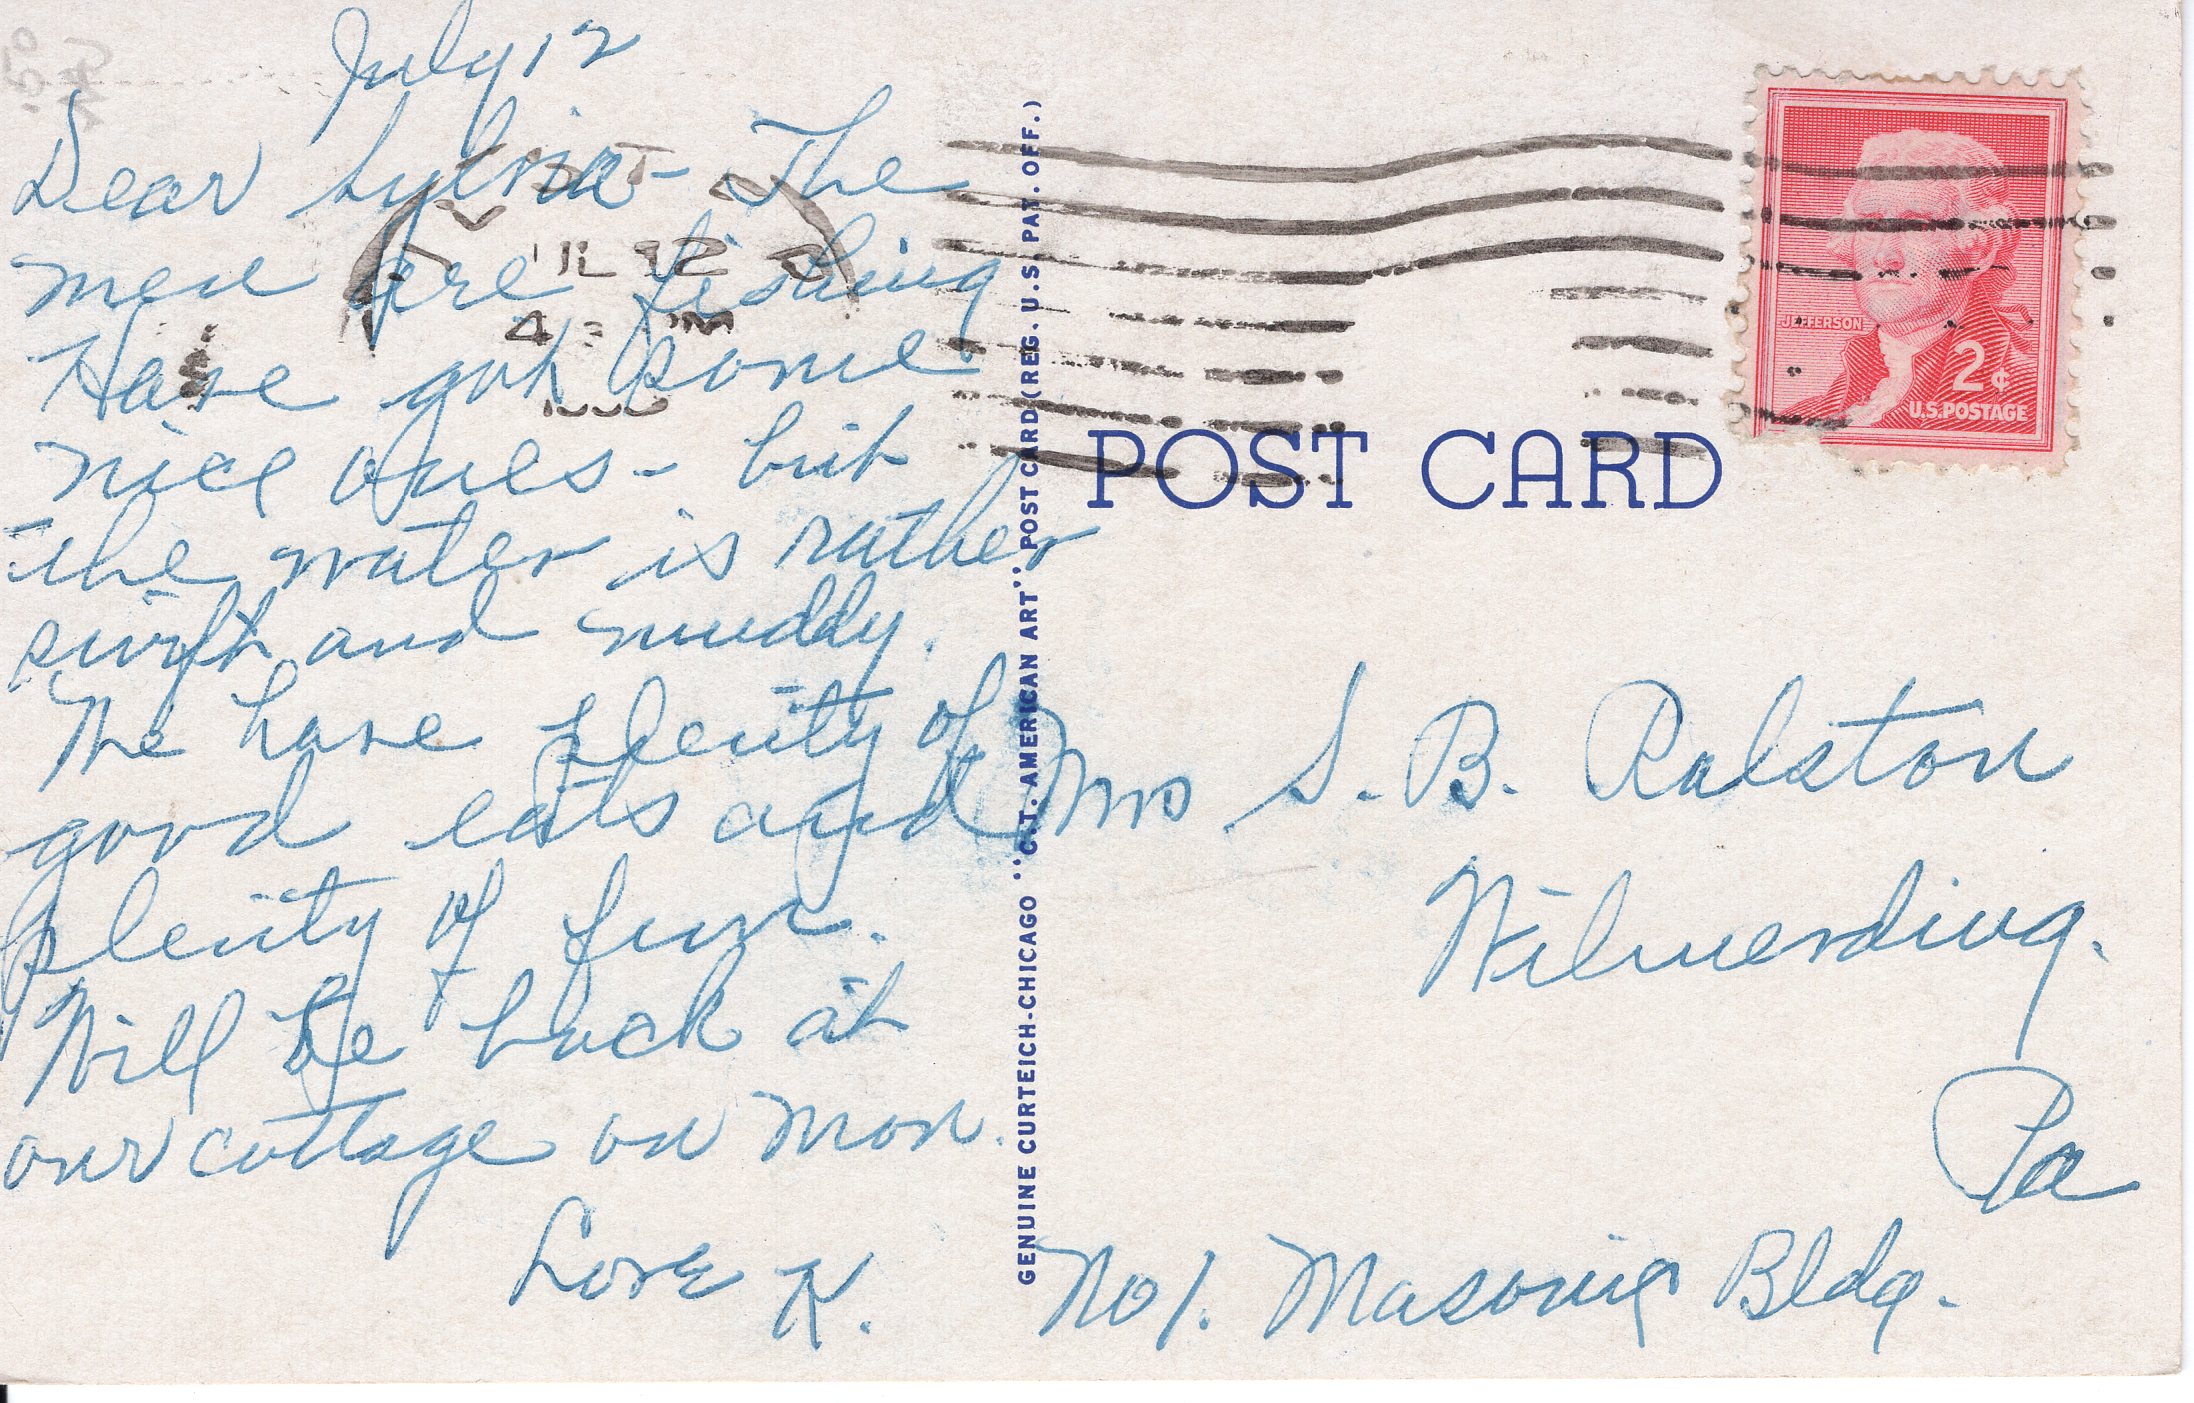 July 12
Dear Sylvia - The
men are fishing
Have got some
nice ones - but
the water is rather
swift and muddy.
We have plenty of
good eats and
plenty of fun.
Will be back at
our cottage on Mon.
Love K.
12
4 - PM
GENUINE CURTEICH-CHICAGO "C.T. AMERICAN ART" POST CARD (REG. U.S. PAT. OFF.)
JEFFERSON
2¢
U.S. POSTAGE
POST CARD
Mrs S. B. Ralston
Wilmerding.
Pa
No 1. Masonic Bldg.